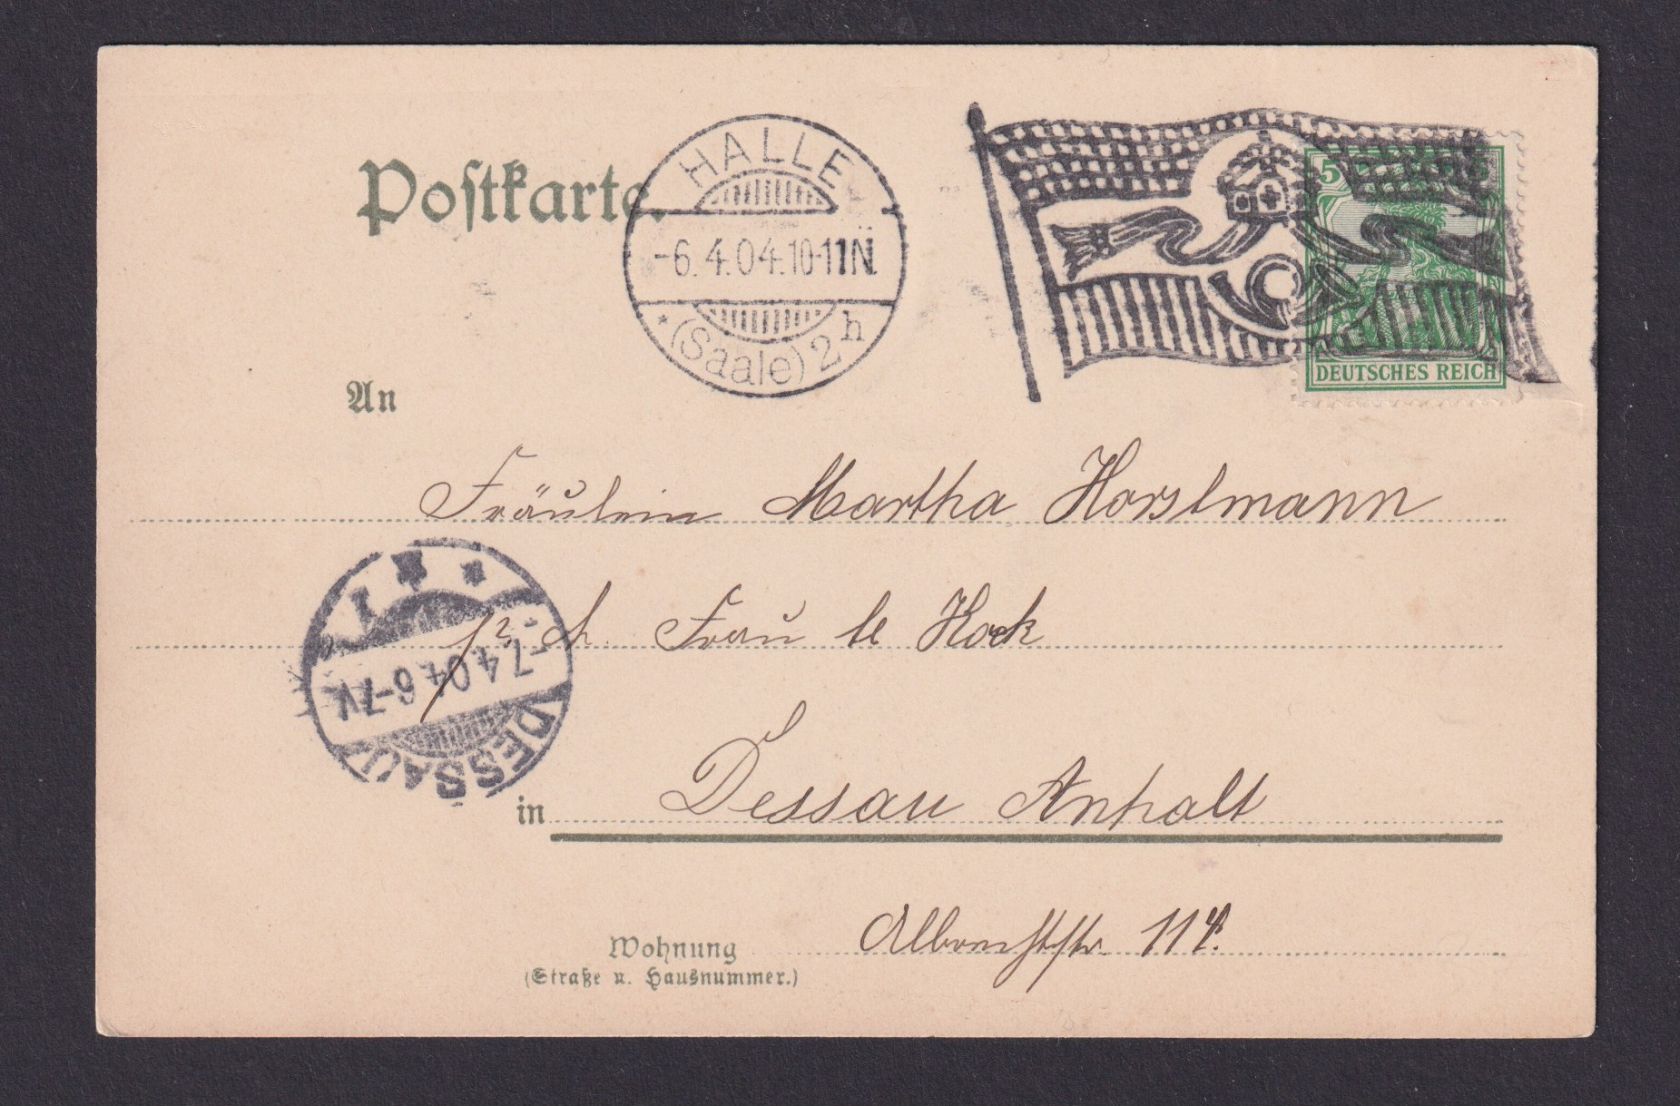 Postkarte.
HALLE
-6.4.04.10-11N.
* (Saale) 2h
5
DEUTSCHES REICH
An
Fräulein Martha Horstmann
Frau le Kock
DESSAU
-7.4.04.6-7V.
1
in Dessau Anhalt
Wohnung Albrechtstr. 114.
(Straße u. Hausnummer.)